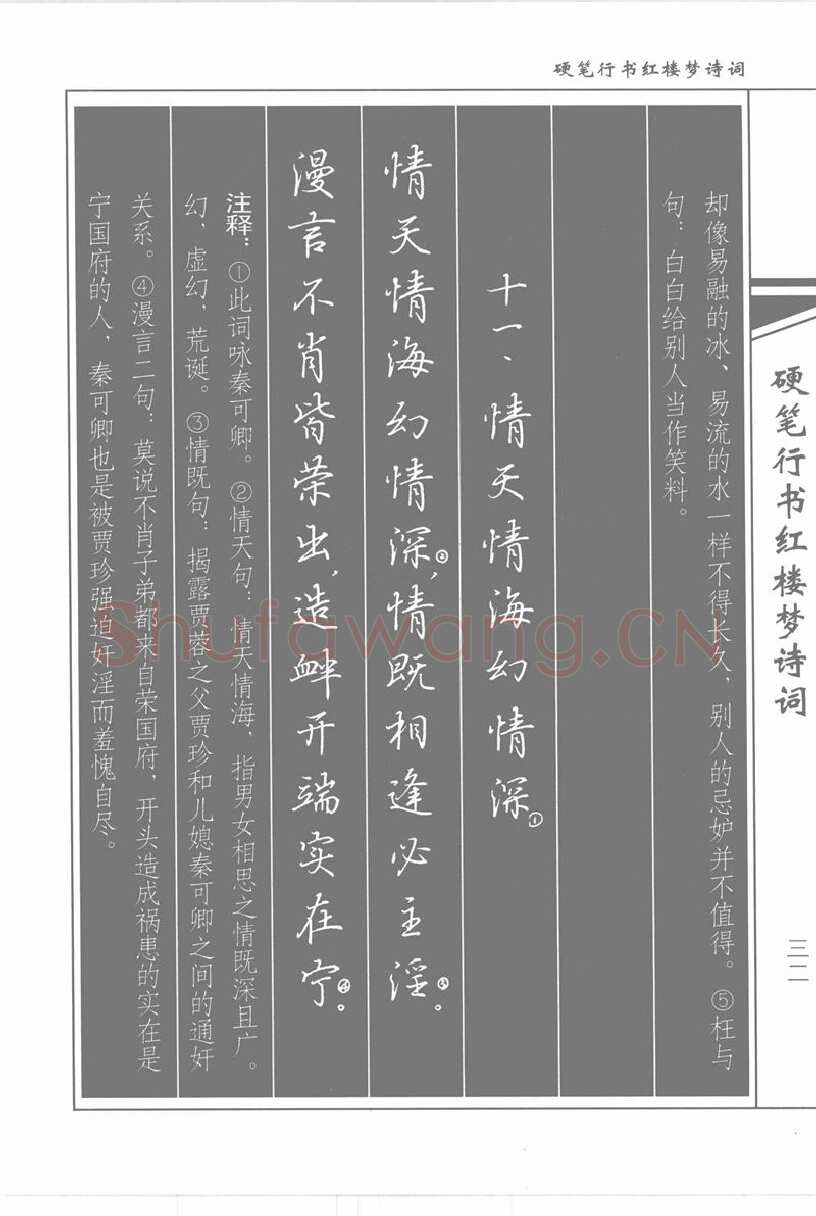 硬笔行书红楼梦诗词
却像易融的冰、易流的水一样不得长久，别人的忌妒并不值得。⑤枉与
句：白白给别人当作笑料。
十一、情天情海幻情深①
情天情海幻情深②，情既相逢必主淫③。
漫言不肖皆荣出，造衅开端实在宁④。
注释：①此词咏秦可卿。②情天句：情天情海，指男女相思之情既深且广。
幻，虚幻，荒诞。③情既句：揭露贾蓉之父贾珍和儿媳秦可卿之间的通奸
关系。④漫言二句：莫说不肖子弟都来自荣国府，开头造成祸患的实在是
宁国府的人，秦可卿也是被贾珍强迫奸淫而羞愧自尽。
硬笔行书红楼梦诗词
三二
Shufawang.CN